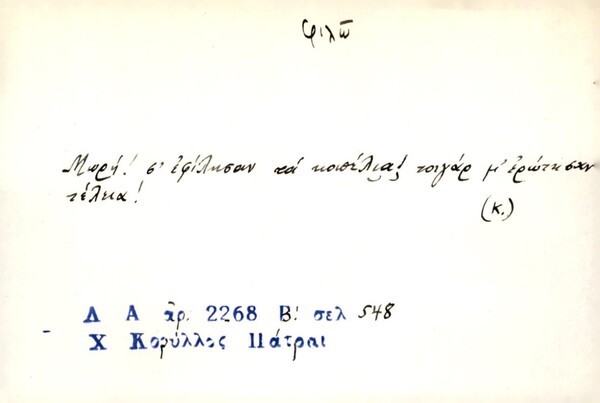 φιλῶ
Μωρή! σ' ἐφίλησαν τά κοπέλια! τσιγάρ μ' ἐρώτησαν
τέλεια!
(κ.)
Λ Α ἀρ. 2268 Β! σελ 548
Χ Κορύλλος Πάτραι